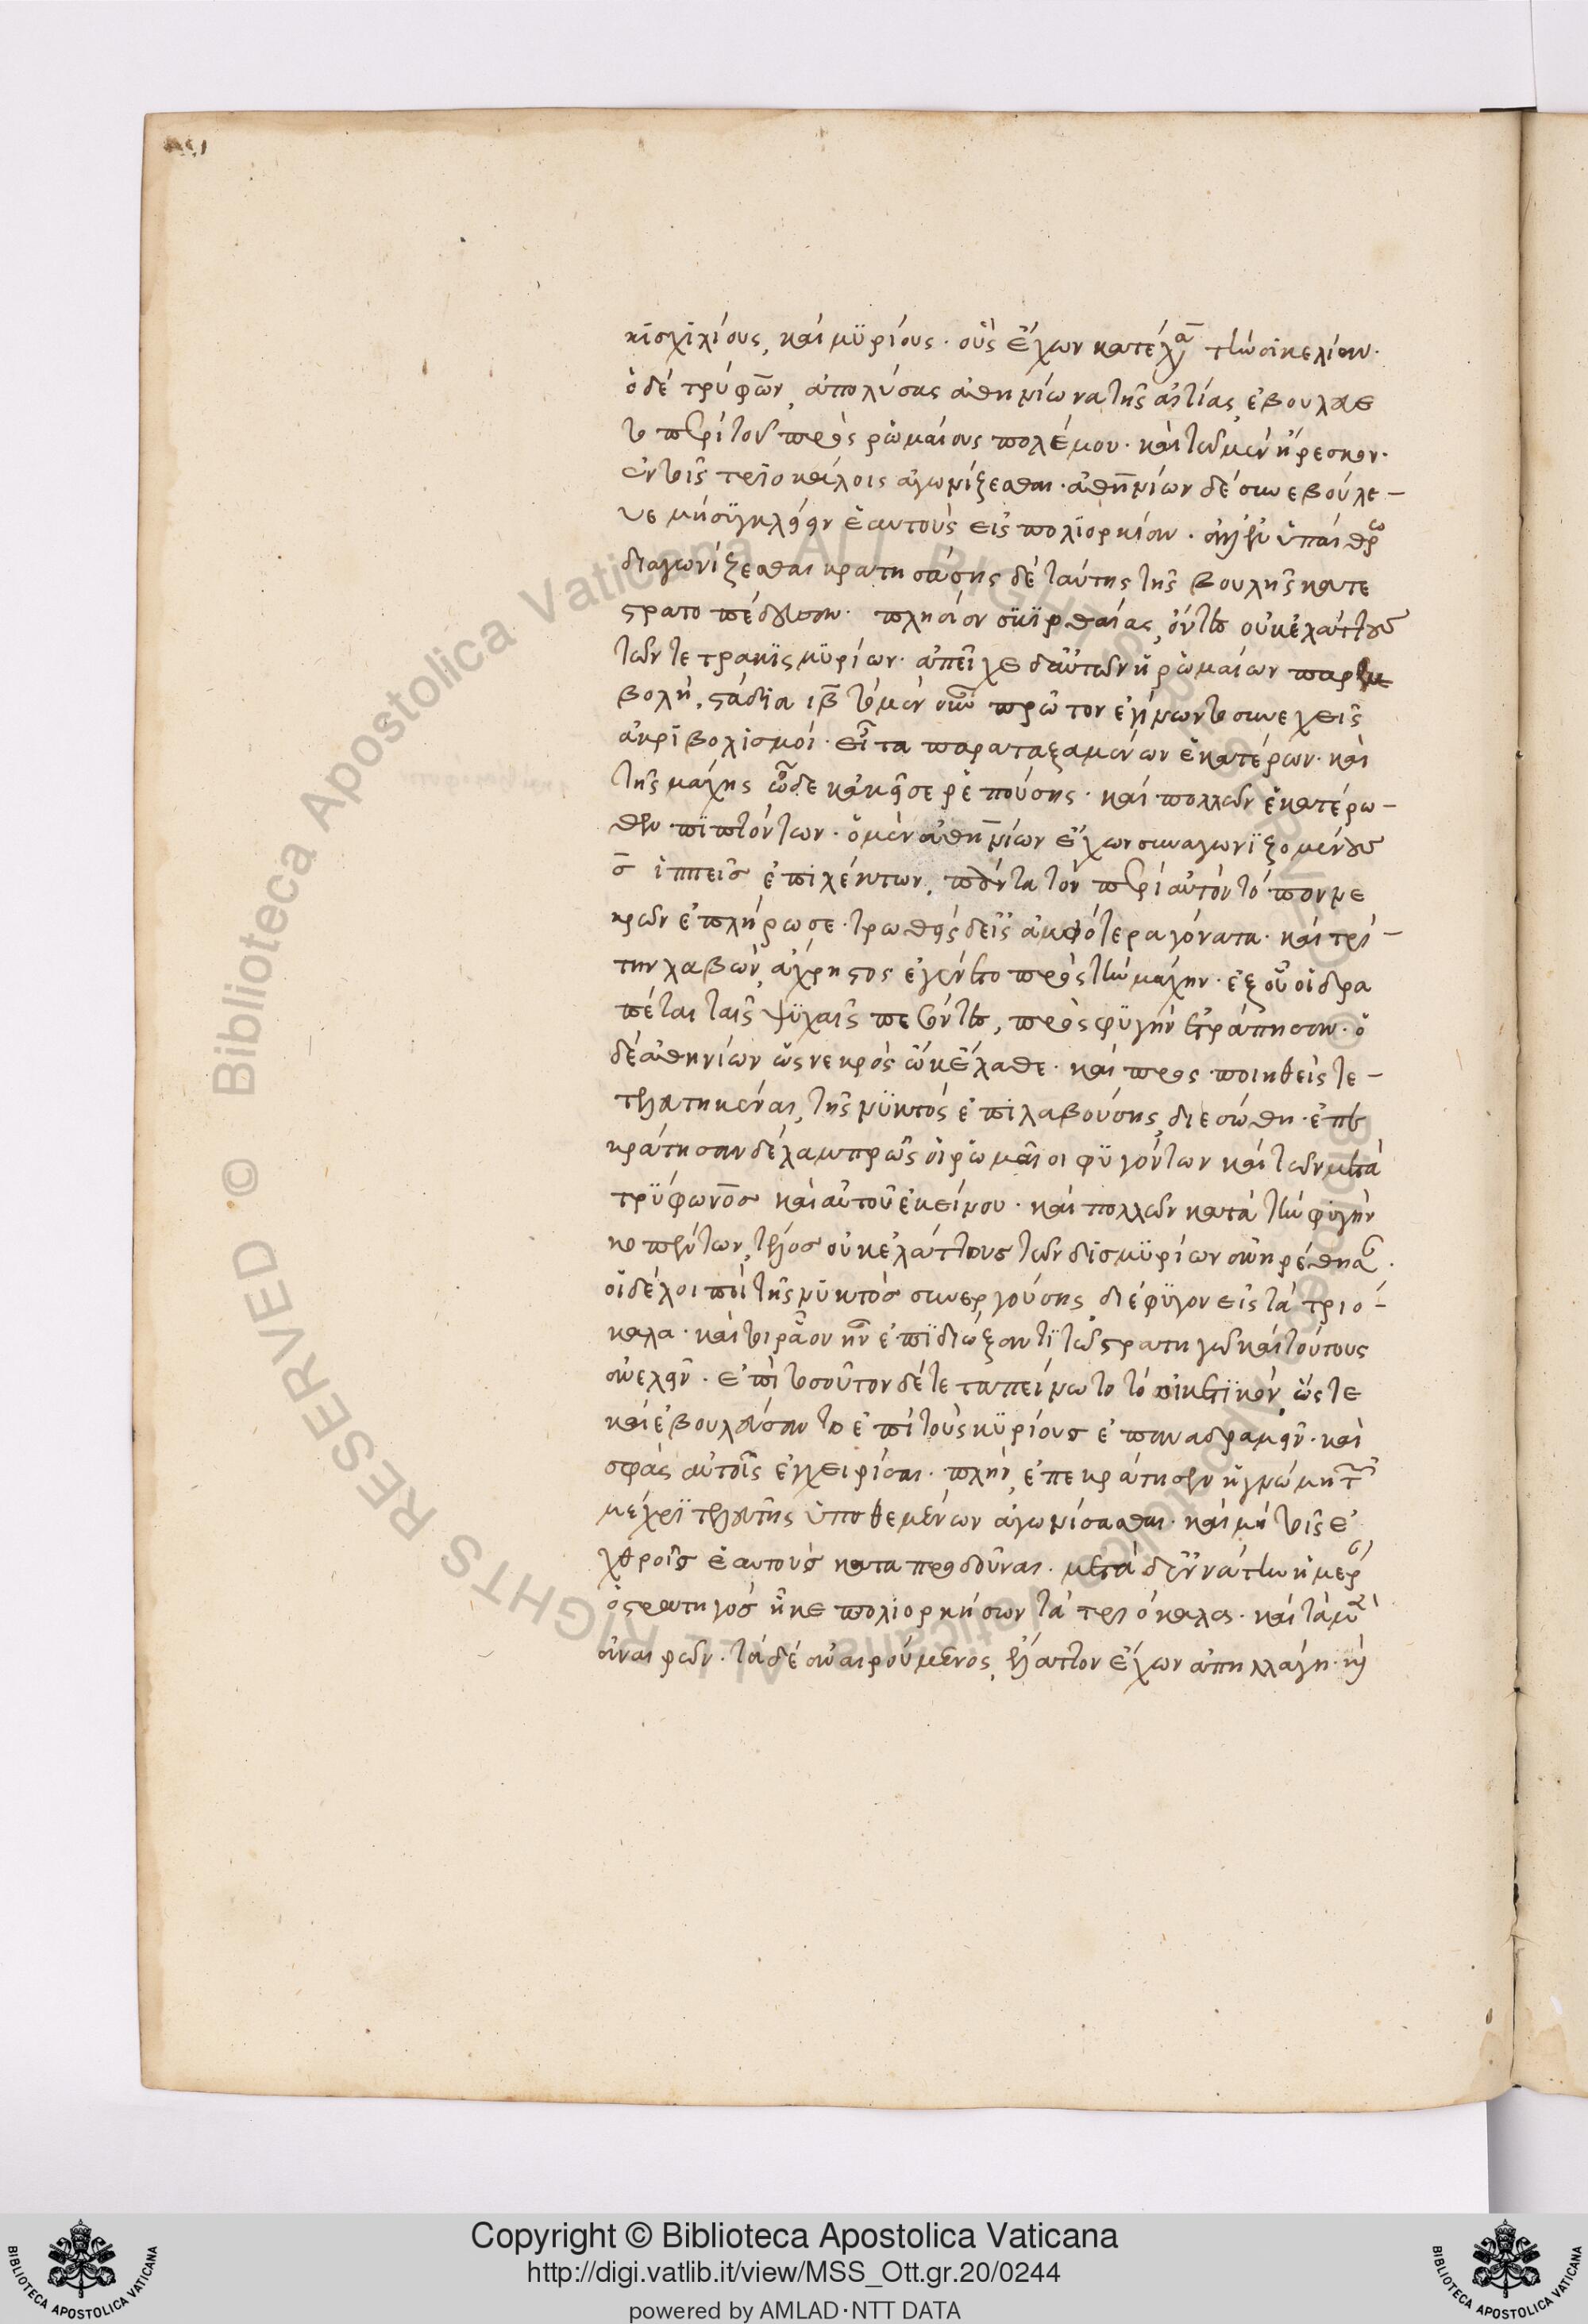 κισχιλίους, καὶ μϋρίους· οὓς ἔχων κατέλαβε τὴν σικελίαν·
ὁ δὲ τρύφων, ἀπολύσας ἀθηνίωνα τῆς αἰτίας, ἐβουλεύε
το περὶ τοῦ πρὸς ῥωμαίους πολέμου· καὶ τῶ μὲν ἤρεσκεν·
ἐν τοῖς τριοκάλοις ἀγωνίζεσθαι· ἀθηνίων δὲ συνεβούλε-
υε μὴ συγκλήειν ἑαυτοὺς εἰς πολϊορκίαν· ἀλλ' ἐν ὑπαίθρω
διαγωνίζεσθαι κρατησάσης δὲ ταύτης τῆς βουλῆς κατε
στρατοπέδευσαν· πλησίον σκιρθαίας, ὄντες οὐκ ἐλάττους
τῶν τετρακϊςμϋρίων· ἀπεῖχε δ' αὐτῶν ἡ ῥωμαίων παρεμ
βολὴ, στάδια ιβ τὸ μὲν οὖν πρῶτον ἐγίνοντο συνεχεῖς
ἀκρϊβολισμοί· εἶτα παραταξαμένων ἑκατέρων· καὶ
τῆς μάχης ὧδε κἀκεῖσε ῥεπούσης· καὶ πολλῶν ἑκατέρω-
θεν πϊπτόντων· ὁ μὲν ἀθηνίων ἔχων συναγωνϊζομένους
σ ἱππεῖς ἐπιλέκτων, πάντα τὸν περὶ αὐτὸν τόπον νε
κρῶν ἐπλήρωσε· τρωθεὶς δ' εἰς ἀμφότερα γόνατα· καὶ τρί-
την λαβὼν, ἄχρηστος ἐγένετο πρὸς τὴν μάχην· ἐξ οὗ οἱ δρα
πέται ταῖς ψϋχαῖς πεσόντες, πρὸς φϋγὴν ἐτράπησαν· ὁ
δὲ ἀθηνίων ὡς νεκρὸς ὢν ἔλαθε· καὶ προσποιηθεὶς τε-
θνηκέναι, τῆς νϋκτὸς ἐπιλαβούσης, διεσώθη· ἐπε
κράτησαν δὲ λαμπρῶς οἱ ῥωμαῖοι φϋγόντων καὶ τῶν μετὰ
τρϋφωνος καὶ αὐτοῦ ἐκείνου· καὶ πολλῶν κατὰ τὴν φϋγὴν
κοπέντων, τέλος οὐκ ἐλάττους τῶν δισμϋρίων ἀνηρέθησαν·
οἱ δὲ λοιποὶ τῆς νϋκτὸς συνεργούσης διέφϋγον εἰς τὰ τριό-
καλα· καίτοι ῥᾶον ἦν ἐπϊδιώξαντϊ τῶ στρατηγῶ καὶ τούτους
ἀνελεῖν· ἐπὶ τοσοῦτον δὲ τεταπείνωτο τὸ οἰκετϊκὸν, ὥστε
καὶ ἐβουλεύσαντο ἐπὶ τοὺς κϋρίους ἐπαναδραμεῖν· καὶ
σφᾶς αὐτοῖς ἐγχειρίσαι· πλὴν, ἐπεκράτησεν ἡ γνώμη τῶν
μέχρϊ τελευτῆς ὑποθεμένων ἀγωνίσασθαι· καὶ μὴ τοῖς ἐ
χθροῖς ἑαυτοὺς καταπροδοῦναι· μετὰ δ' ἐννάτην ἡμέραν
ὁ στρατηγὸς ἧκε πολιορκήσων τὰ τριόκαλα· καὶ τὰ μὲν
ἀναιρῶν· τὰ δὲ ἀναιρούμενος, ἔλαττον ἔχων ἀπηλλάγη· καὶ
Copyright © Biblioteca Apostolica Vaticana
http://digi.vatlib.it/view/MSS_Ott.gr.20/0244
powered by AMLAD·NTT DATA